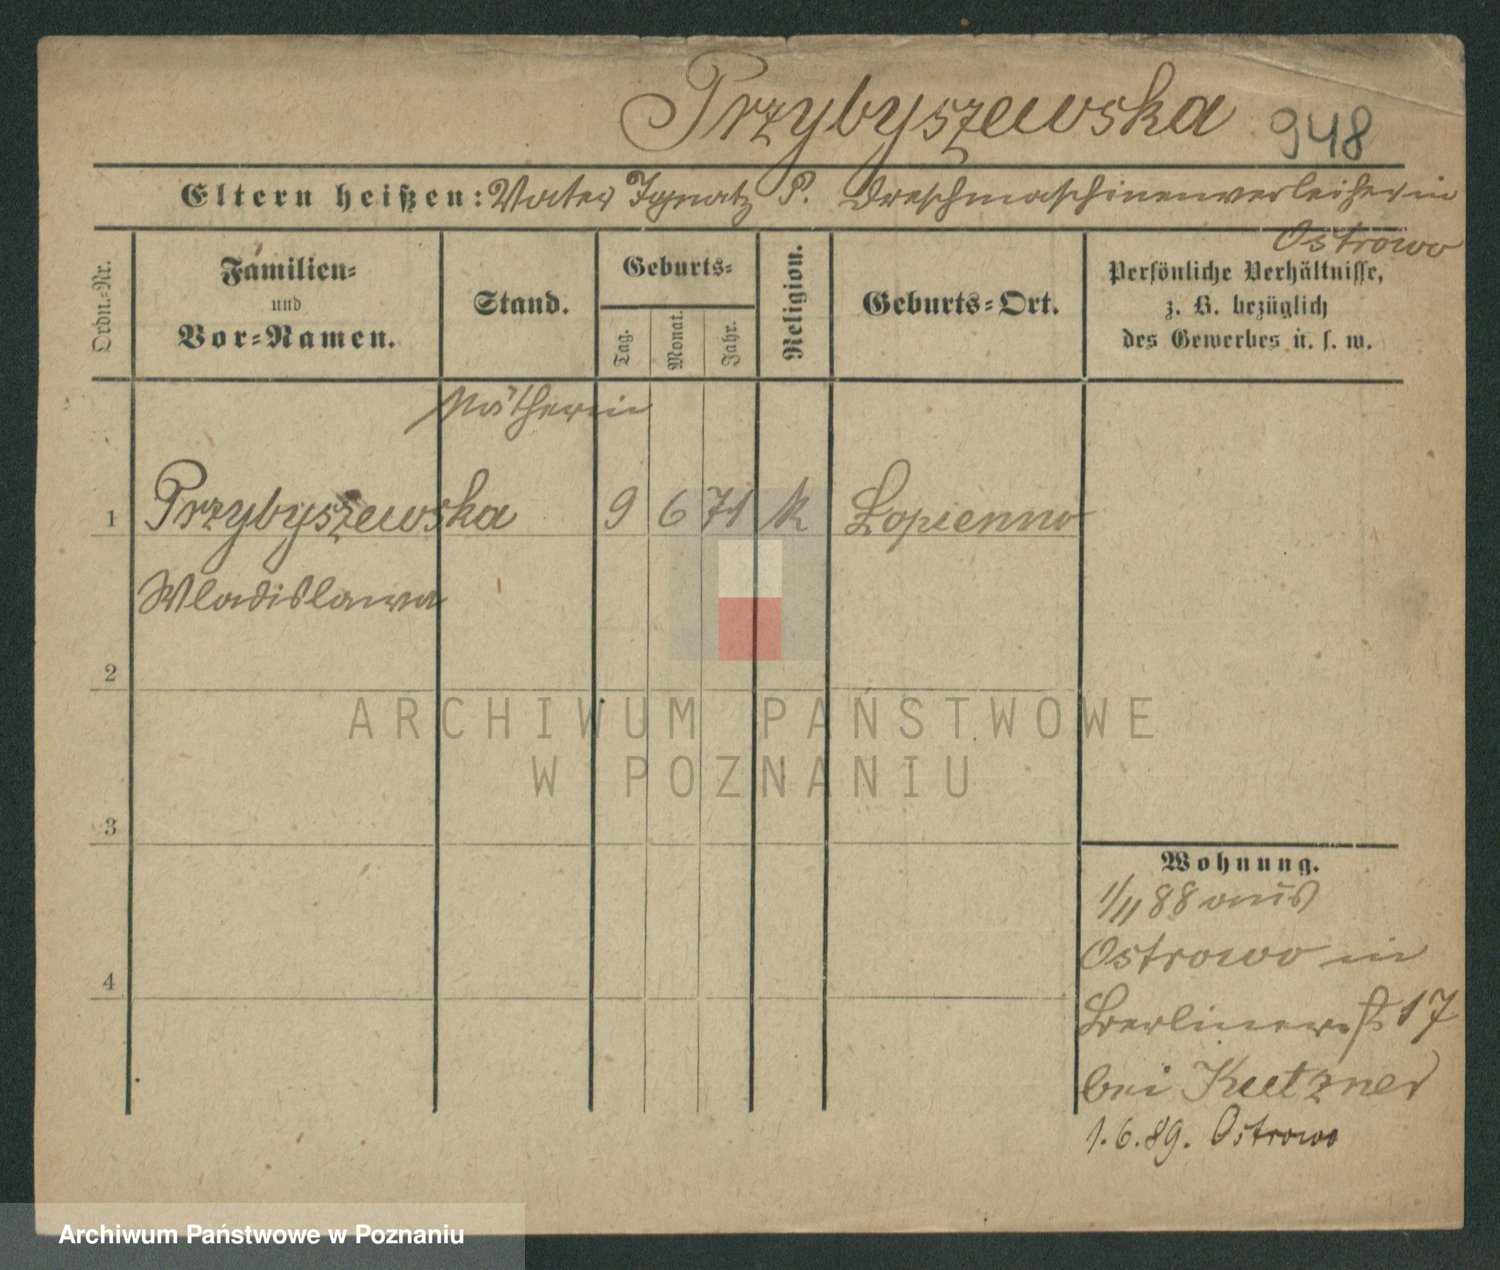 Przybyszewska 948
Eltern heißen: Vater Ignatz P. Dreschmaschinenverleiher in
Ostrowo
Ordn.-Nr.
Familien-
und
Vor-Namen.
Stand.
Geburts-
Tag.
Monat.
Jahr.
Religion.
Geburts-Ort.
Persönliche Verhältnisse,
z. B. bezüglich
des Gewerbes u. s. w.
Nätherin
1 Przybyszewska 9 6 71 k Lopienno
Wladislawa
2
ARCHIWUM PAŃSTWOWE
W POZNANIU
3
Wohnung.
1/11 88 aus
Ostrowo in
4
Berlinerst 17
bei Kutzner
1.6.89. Ostrowo
Archiwum Państwowe w Poznaniu